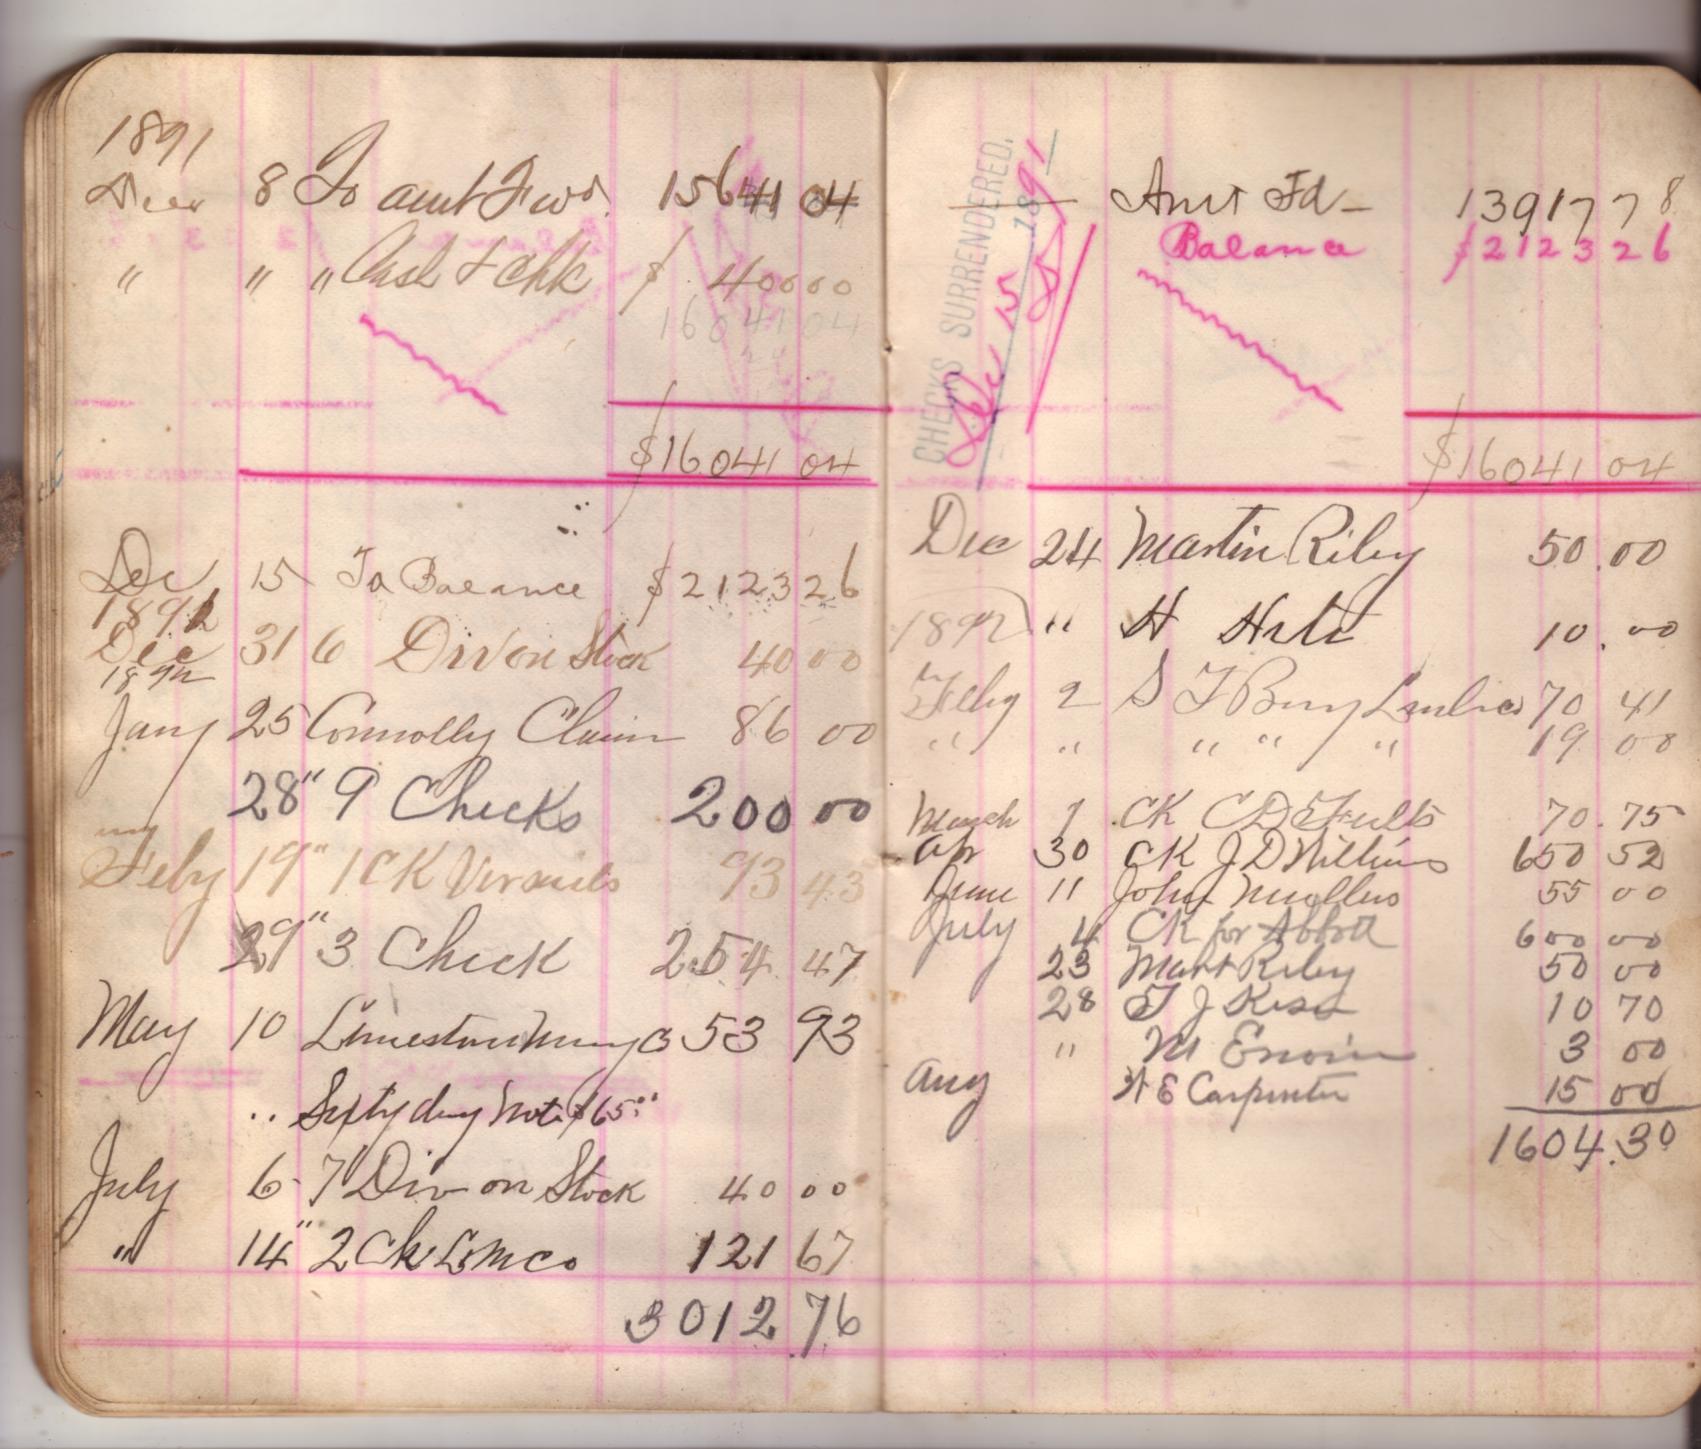 1891
Decr 8 To amt Fwd. 15641 04
" " " Cash & Chk $ 400 00
16041 04
$16041 04
Dec 15 To Balance $2123 26
1891
Dec 31 6 Div on Stock 40 00
1892
Jany 25 Connolly Claim 86 00
28" 9 Checks 200 00
Feby 19" 1 CK 93 43
29" 3 Check 254 47
May 10 53 93
" Sixty day Note $65 00
July 6 7" Div on Stock 40 00
" 14" 2 Ck L M Co 121 67
3012 76
CHECKS SURRENDERED.
Dec 15 1891
Amt Fd - 13917 78
Balance $2123 26
$16041 04
Dec 24 Martin Riley 50.00
1892 " H 10.00
Feby 2 S F 70 41
" " " " " 19 00
March 7 CK C D Fults 70.75
Ap 30 CK J D Wilkins 650 52
June 11 John Muellus 55 00
July 4 CK for Abbott 600 00
23 Mart Riley 50 00
28 T J 10 70
" M Erwin 3 00
Aug W E Carpenter 15 00
1604.30